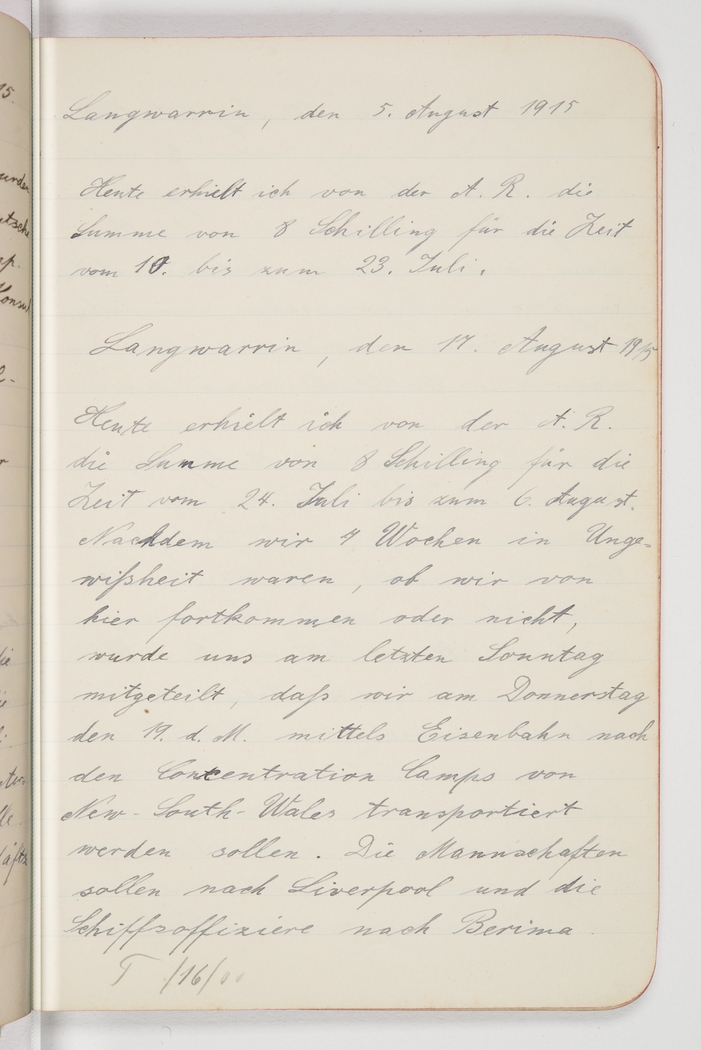 Langwarrin, den 5. August 1915
Heute erhielt ich von der A. R. die
Summe von 8 Schilling für die Zeit
vom 10. bis zum 23. Juli.
Langwarrin, den 17. August 1915
Heute erhielt ich von der A. R.
die Summe von 8 Schilling für die
Zeit vom 24. Juli bis zum 6. August.
Nachdem wir 4 Wochen in Unge-
wißheit waren, ob wir von
hier fortkommen oder nicht,
wurde uns am letzten Sonntag
mitgeteilt, daß wir am Donnerstag
den 19. d. M. mittels Eisenbahn nach
den Concentration Camps von
New-South-Wales transportiert
werden sollen. Die Mannschaften
sollen nach Liverpool und die
Schiffsoffiziere nach Berima.